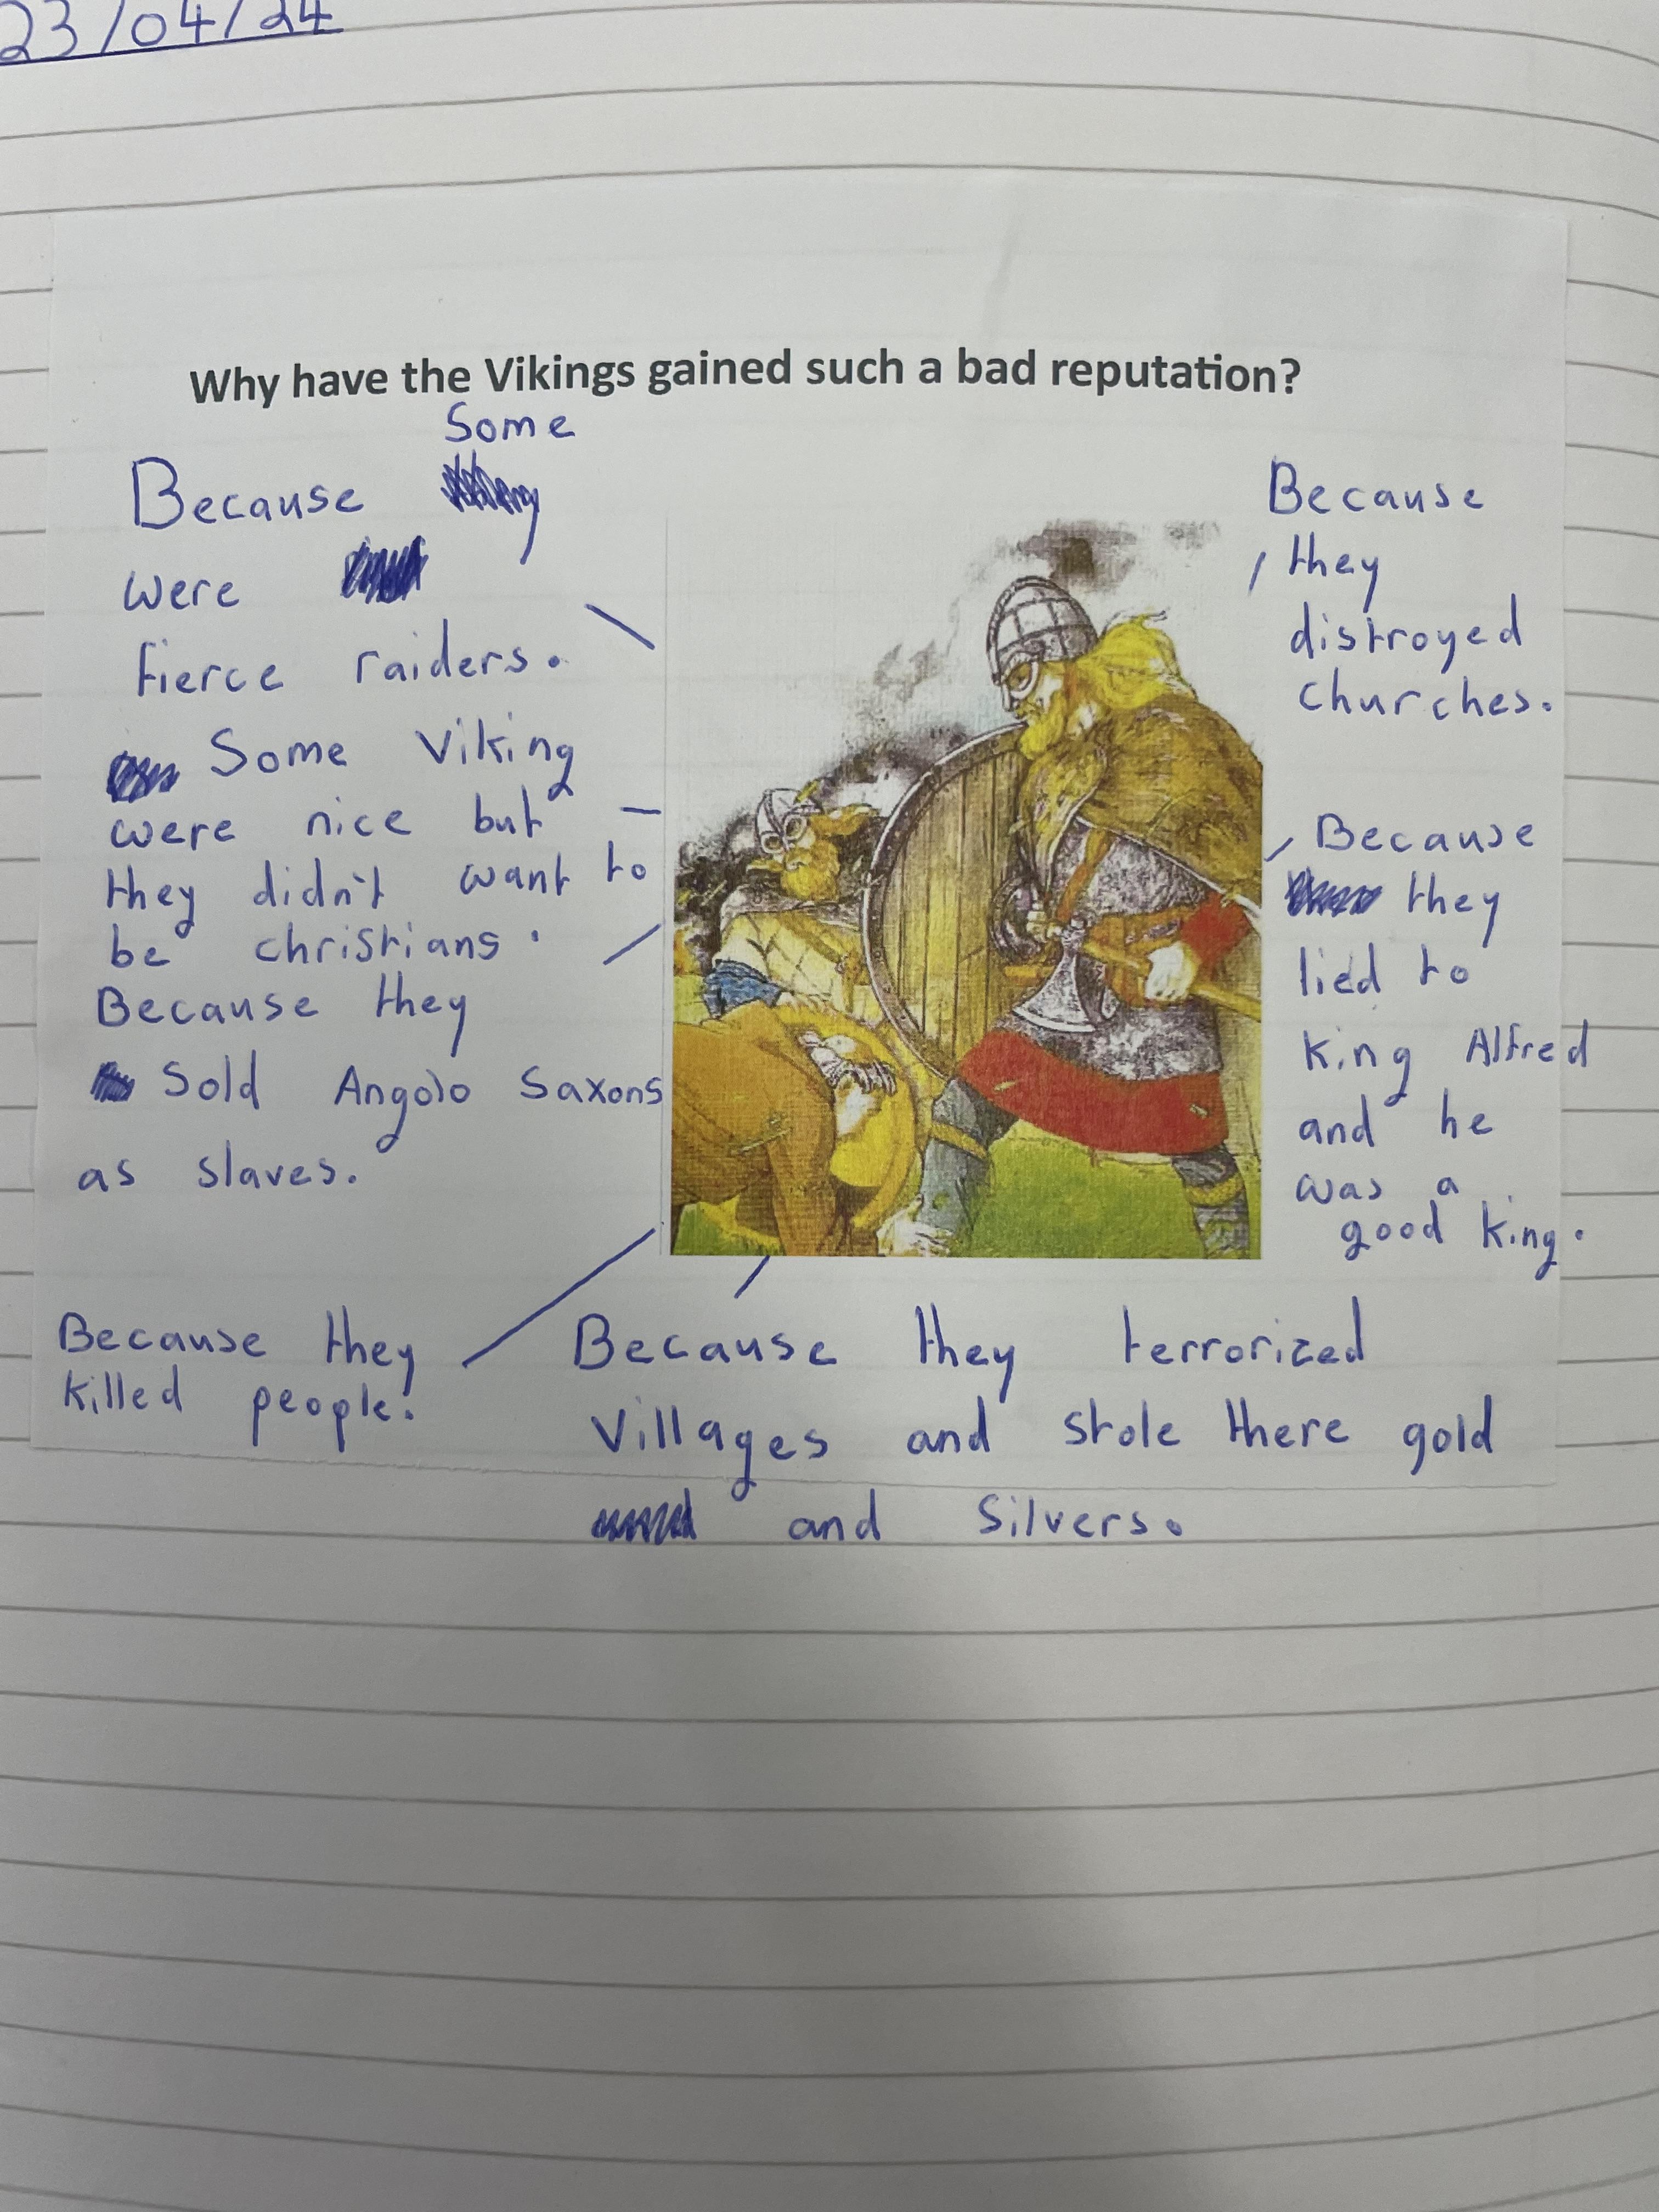 23/04/24
Why have the Vikings gained such a bad reputation?
Some
Because
were
fierce raiders.
Some Viking
were nice but
they didn't want to
be christians.
Because they
Sold Angolo Saxons
as slaves.
Because they
killed people.
Because they terrorized
Villages and stole there gold
and Silvers.
Because
they
distroyed
churches.
Because
they
lied to
King Alfred
and he
was a
good king.